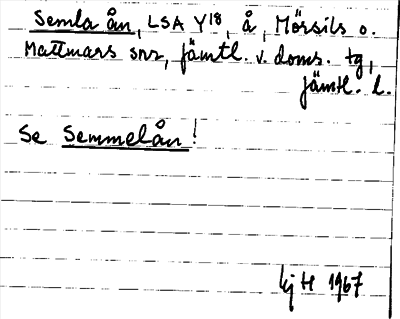 Semla ån, LSA Y18, å, Mörsils o.
Mattmars snr, jämtl. v. doms. tg,
jämtl. l.
Se Semmelån!
kjH 1967